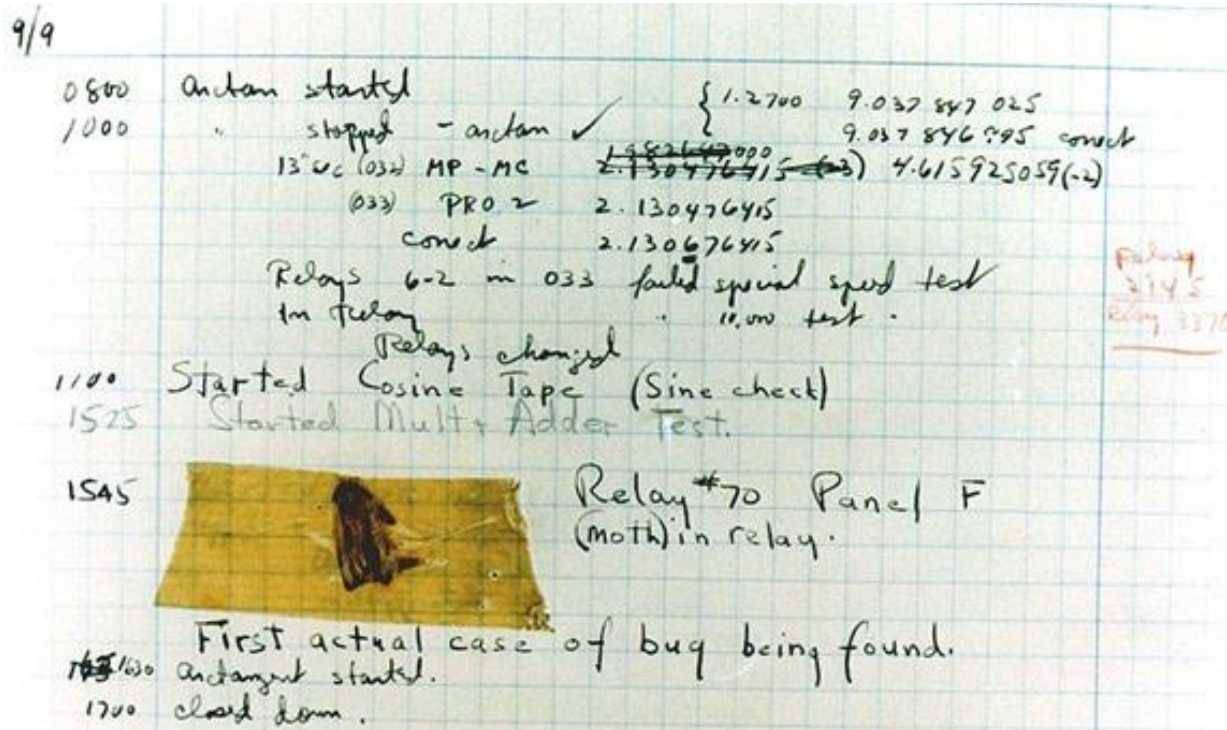 9/9
0800 arctan started
1000 " stopped - arctan ✓
{ 1.2700 9.037 847 025
9.037 846 795 correct
13"uc (032) MP - MC 2.130476415 (-3) 4.615925059(-2)
(033) PRO 2 2.130476415
correct 2.130676415
Relays 6-2 in 033 failed special speed test
In Relay " 10,000 test .
Relays changed
Relay
2145
Relay 3370
1100 Started Cosine Tape (Sine check)
1525 Started Mult + Adder Test.
1545 Relay #70 Panel F
(moth) in relay.
First actual case of bug being found.
1630 arctangent started.
1700 closed down .